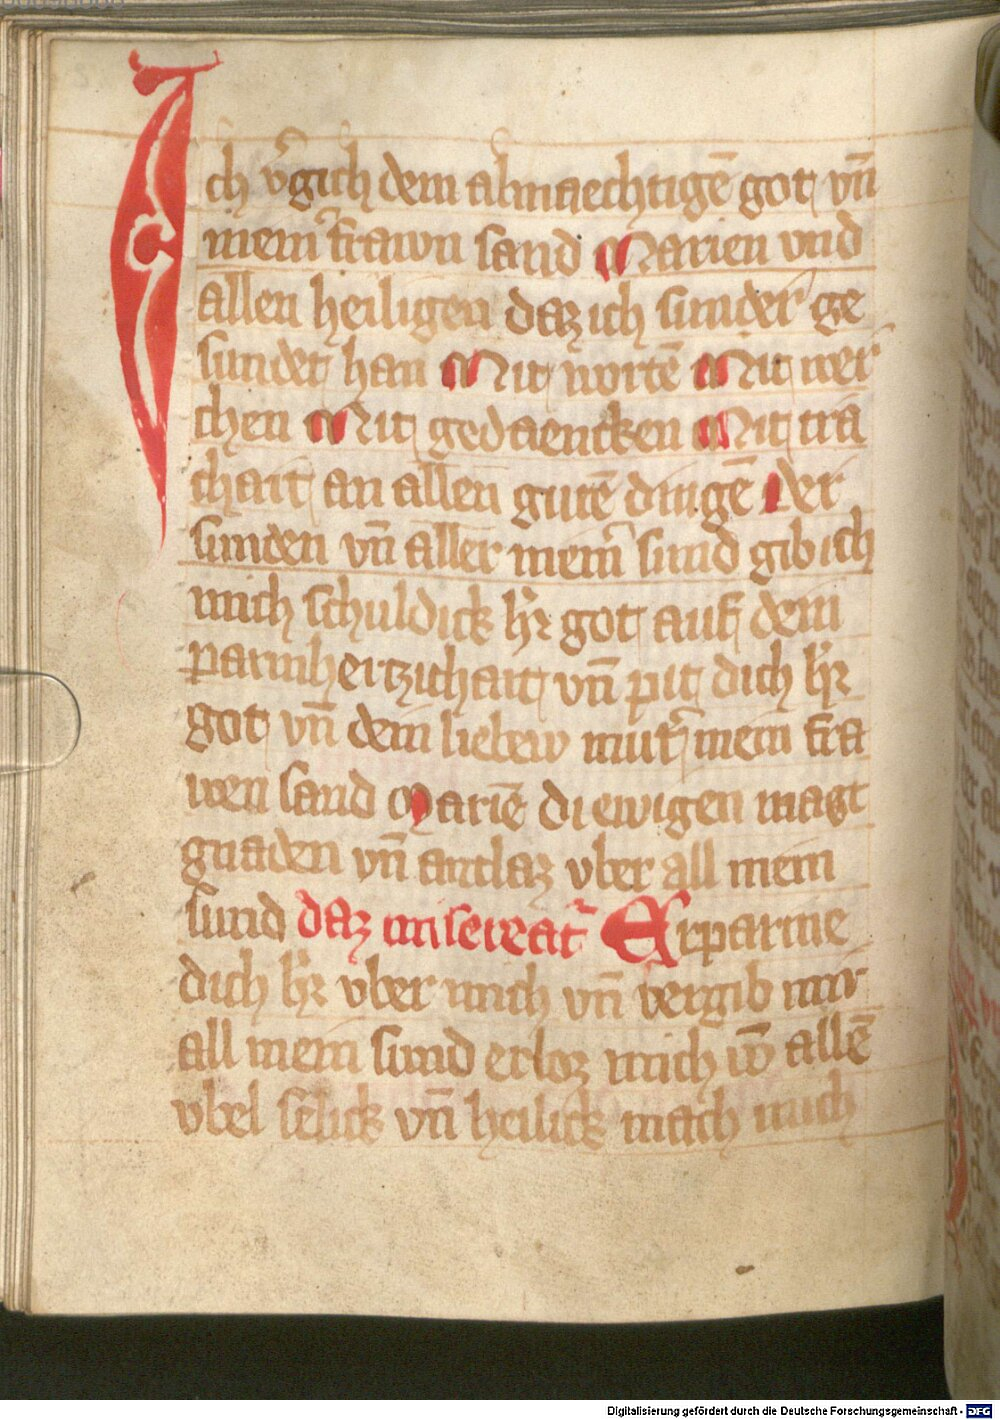 Ich v̾gich dem almaechtigē got vn̄
mein̾ frawn sand Marien vnd
allen heiligen daz ich sunder ge
sundet han Mit wortē Mit wer
chen Mit gedaencken Mit tra
chait an allen gutē dingē Der
sunden vn̄ aller mein̾ sund gib ich
mich schuldick h̾r got auf dein
parmhertzichait vn̄ pit dich h̾r
got vn̄ dein liebew mut̾ mein fra
wen sand Mariē di ewigen magt
gnaden vn̄ antlaz vber all mein
sund daz misereat̾ Erparme
dich h̾r vber mich vn̄ vergib mir
all mein sund erloz mich vō allē
vbel selick vn̄ heilick mach mich
Digitalisierung gefördert durch die Deutsche Forschungsgemeinschaft - DFG